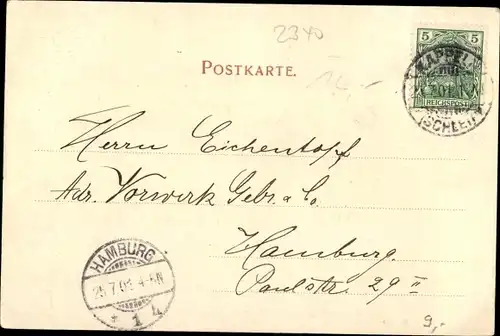 2340
5 5
REICHSPOST
KAPPELN
(SCHLEI)
POSTKARTE.
14,-
Herrn Eichentopf
Adr. Vorwerk Gebr. & Co.
Hamburg.
Paulstr. 29 II
HAMBURG
25.7.03 4-5N
* 1 k
9,-